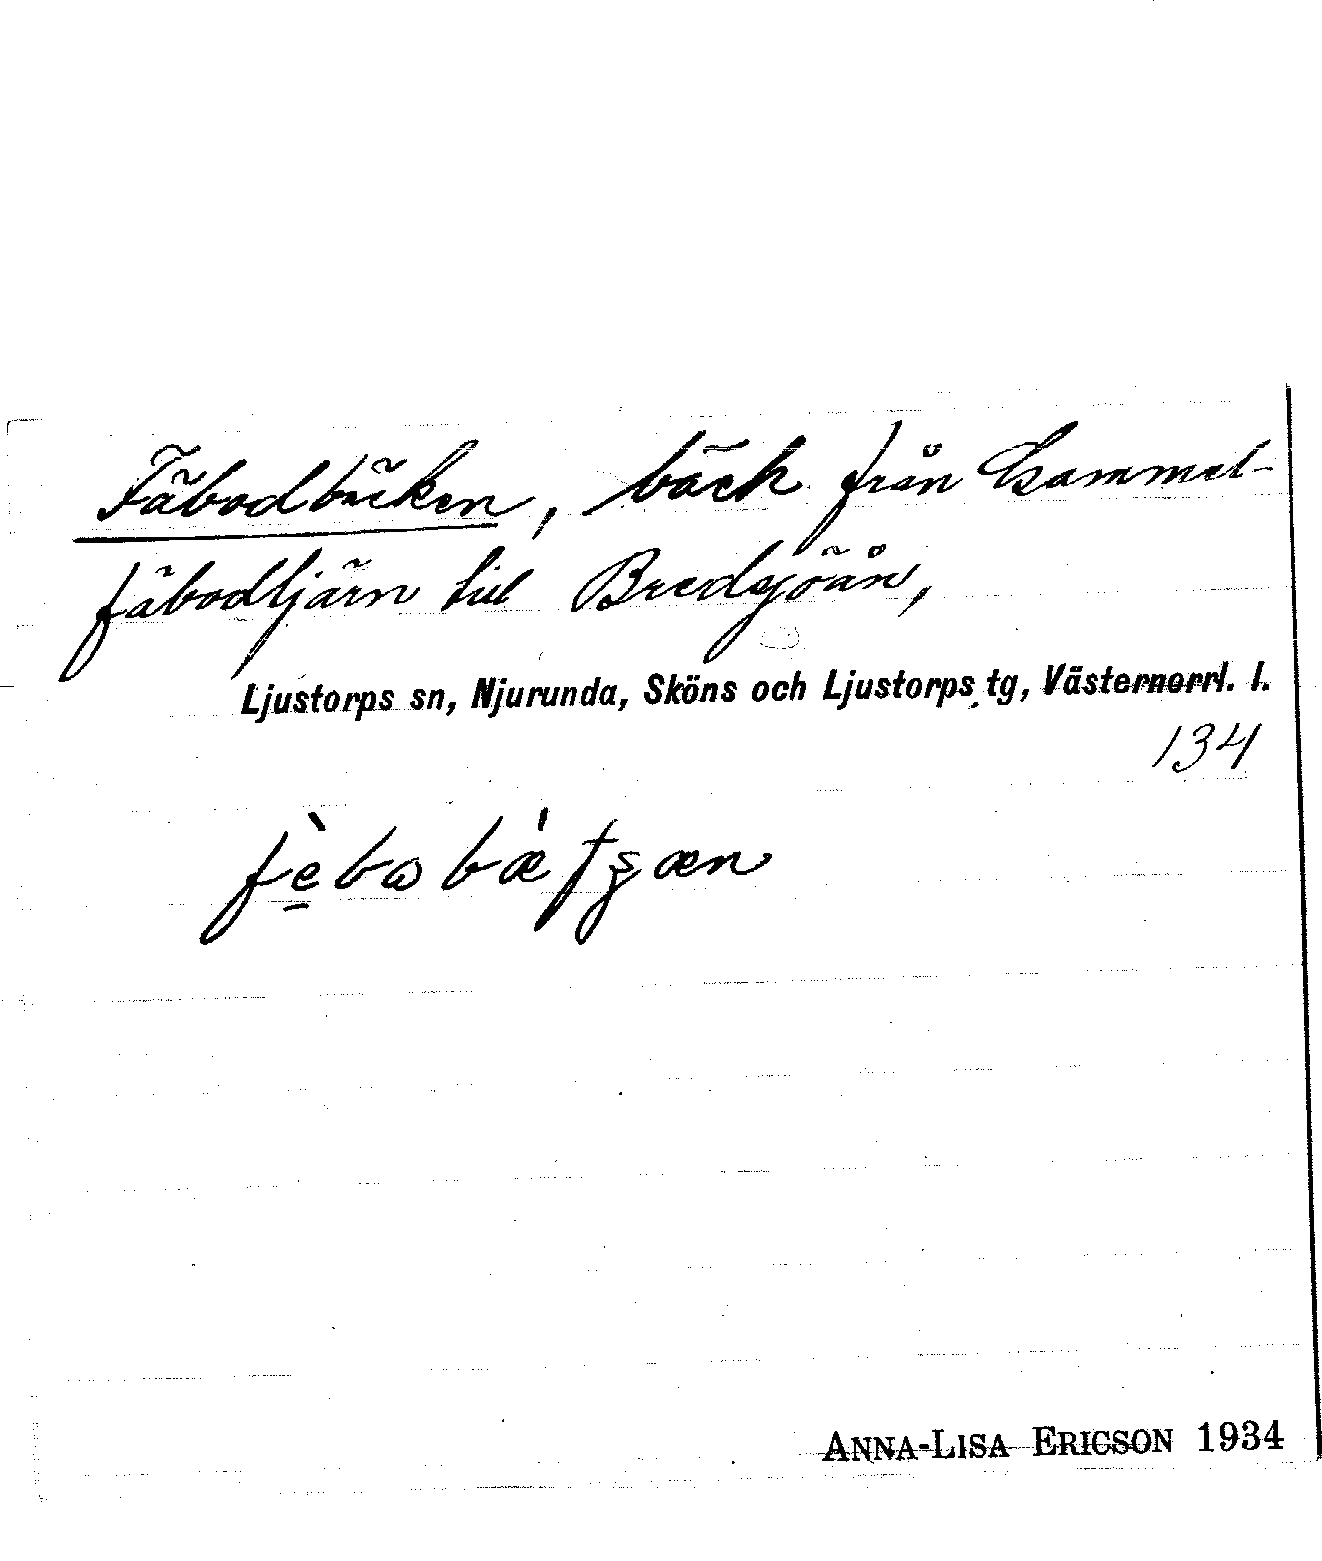 Fäbodbäcken, bäck från Gammel-
fäbodtjärn till Bredsjöån,
Ljustorps sn, Njurunda, Sköns och Ljustorps tg, Västernorrl. l.
134
ANNA-LISA ERICSON 1934